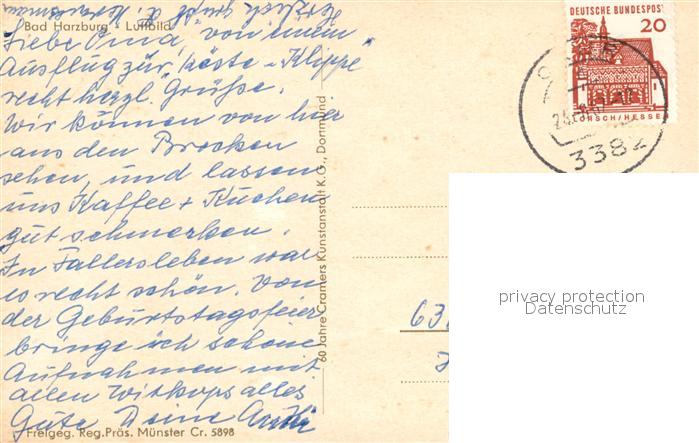 Bad Harzburg - Luftbild
Liebe Oma von einem
Ausflug zur Käste-Klippe
recht herzl. Grüße.
Wir können von hier
aus den Brocken
sehen, und lassen
uns Kaffee + Kuchen
gut schmecken.
In Fallersleben war
es recht schön. Von
der Geburtstagsfeier
bringe ich schöne
Aufnahmen mit
allen Witkops alles
Gute Deine
Freigeg. Reg.Präs. Münster Cr. 5898
60 Jahre Cramers Kunstanstalt K.G., Dortmund
DEUTSCHE BUNDESPOST
20
LORSCH/HESSEN
3382
63
privacy protection
Datenschutz